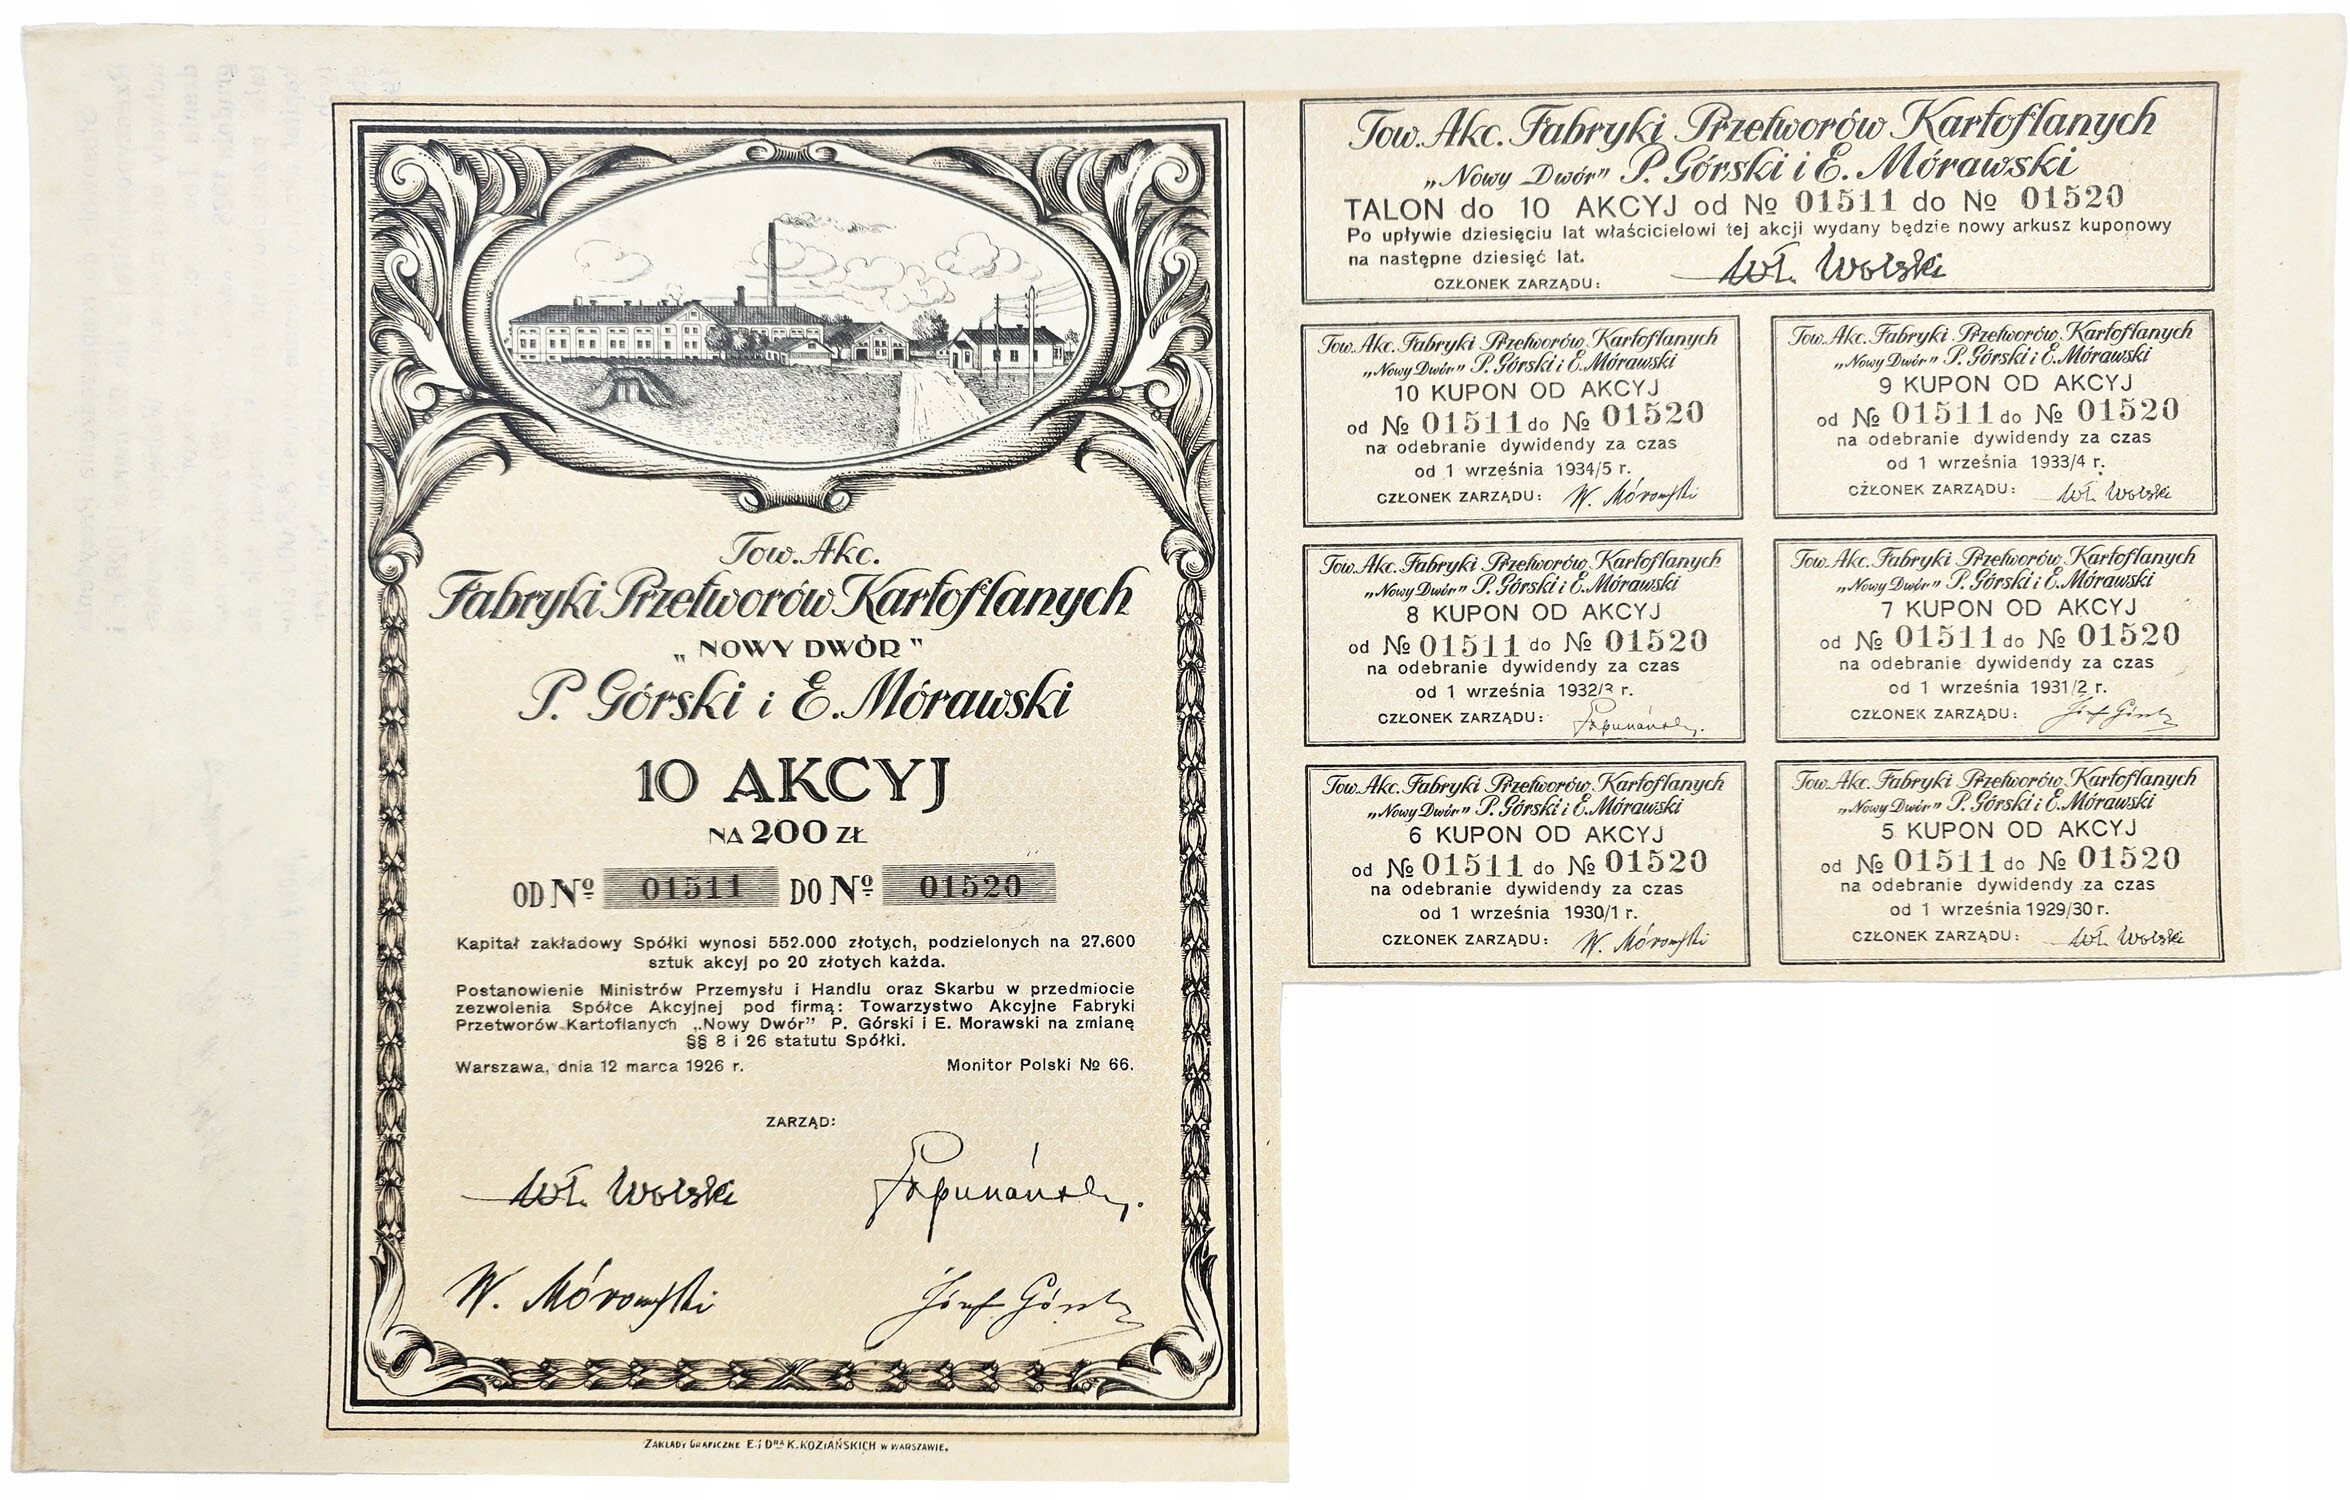 Tow. Akc.
Fabryki Przetworów Kartoflanych
„NOWY DWÓR"
P. Górski i E. Mórawski
10 AKCYJ
NA 200 ZŁ
OD Nº 01511 DO Nº 01520
Kapitał zakładowy Spółki wynosi 552.000 złotych, podzielonych na 27.600
sztuk akcyj po 20 złotych każda.
Postanowienie Ministrów Przemysłu i Handlu oraz Skarbu w przedmiocie
zezwolenia Spółce Akcyjnej pod firmą: Towarzystwo Akcyjne Fabryki
Przetworów Kartoflanych „Nowy Dwór" P. Górski i E. Morawski na zmianę
§§ 8 i 26 statutu Spółki.
Warszawa, dnia 12 marca 1926 r. Monitor Polski № 66.
ZARZĄD:
Wł. Wolski
W. Mórawski
Józef Górski
ZAKŁADY GRAFICZNE E. i DRA K. KOZIAŃSKICH W WARSZAWIE.
Tow. Akc. Fabryki Przetworów Kartoflanych
„Nowy Dwór" P. Górski i E. Mórawski
TALON do 10 AKCYJ od № 01511 do № 01520
Po upływie dziesięciu lat właścicielowi tej akcji wydany będzie nowy arkusz kuponowy
na następne dziesięć lat.
CZŁONEK ZARZĄDU: Wł. Wolski
Tow. Akc. Fabryki Przetworów Kartoflanych
„Nowy Dwór" P. Górski i E. Mórawski
10 KUPON OD AKCYJ
od № 01511 do № 01520
na odebranie dywidendy za czas
od 1 września 1934/5 r.
CZŁONEK ZARZĄDU: W. Mórawski
Tow. Akc. Fabryki Przetworów Kartoflanych
„Nowy Dwór" P. Górski i E. Mórawski
9 KUPON OD AKCYJ
od № 01511 do № 01520
na odebranie dywidendy za czas
od 1 września 1933/4 r.
CZŁONEK ZARZĄDU: Wł. Wolski
Tow. Akc. Fabryki Przetworów Kartoflanych
„Nowy Dwór" P. Górski i E. Mórawski
8 KUPON OD AKCYJ
od № 01511 do № 01520
na odebranie dywidendy za czas
od 1 września 1932/3 r.
CZŁONEK ZARZĄDU:
Tow. Akc. Fabryki Przetworów Kartoflanych
„Nowy Dwór" P. Górski i E. Mórawski
7 KUPON OD AKCYJ
od № 01511 do № 01520
na odebranie dywidendy za czas
od 1 września 1931/2 r.
CZŁONEK ZARZĄDU: Józef Górski
Tow. Akc. Fabryki Przetworów Kartoflanych
„Nowy Dwór" P. Górski i E. Mórawski
6 KUPON OD AKCYJ
od № 01511 do № 01520
na odebranie dywidendy za czas
od 1 września 1930/1 r.
CZŁONEK ZARZĄDU: W. Mórawski
Tow. Akc. Fabryki Przetworów Kartoflanych
„Nowy Dwór" P. Górski i E. Mórawski
5 KUPON OD AKCYJ
od № 01511 do № 01520
na odebranie dywidendy za czas
od 1 września 1929/30 r.
CZŁONEK ZARZĄDU: Wł. Wolski